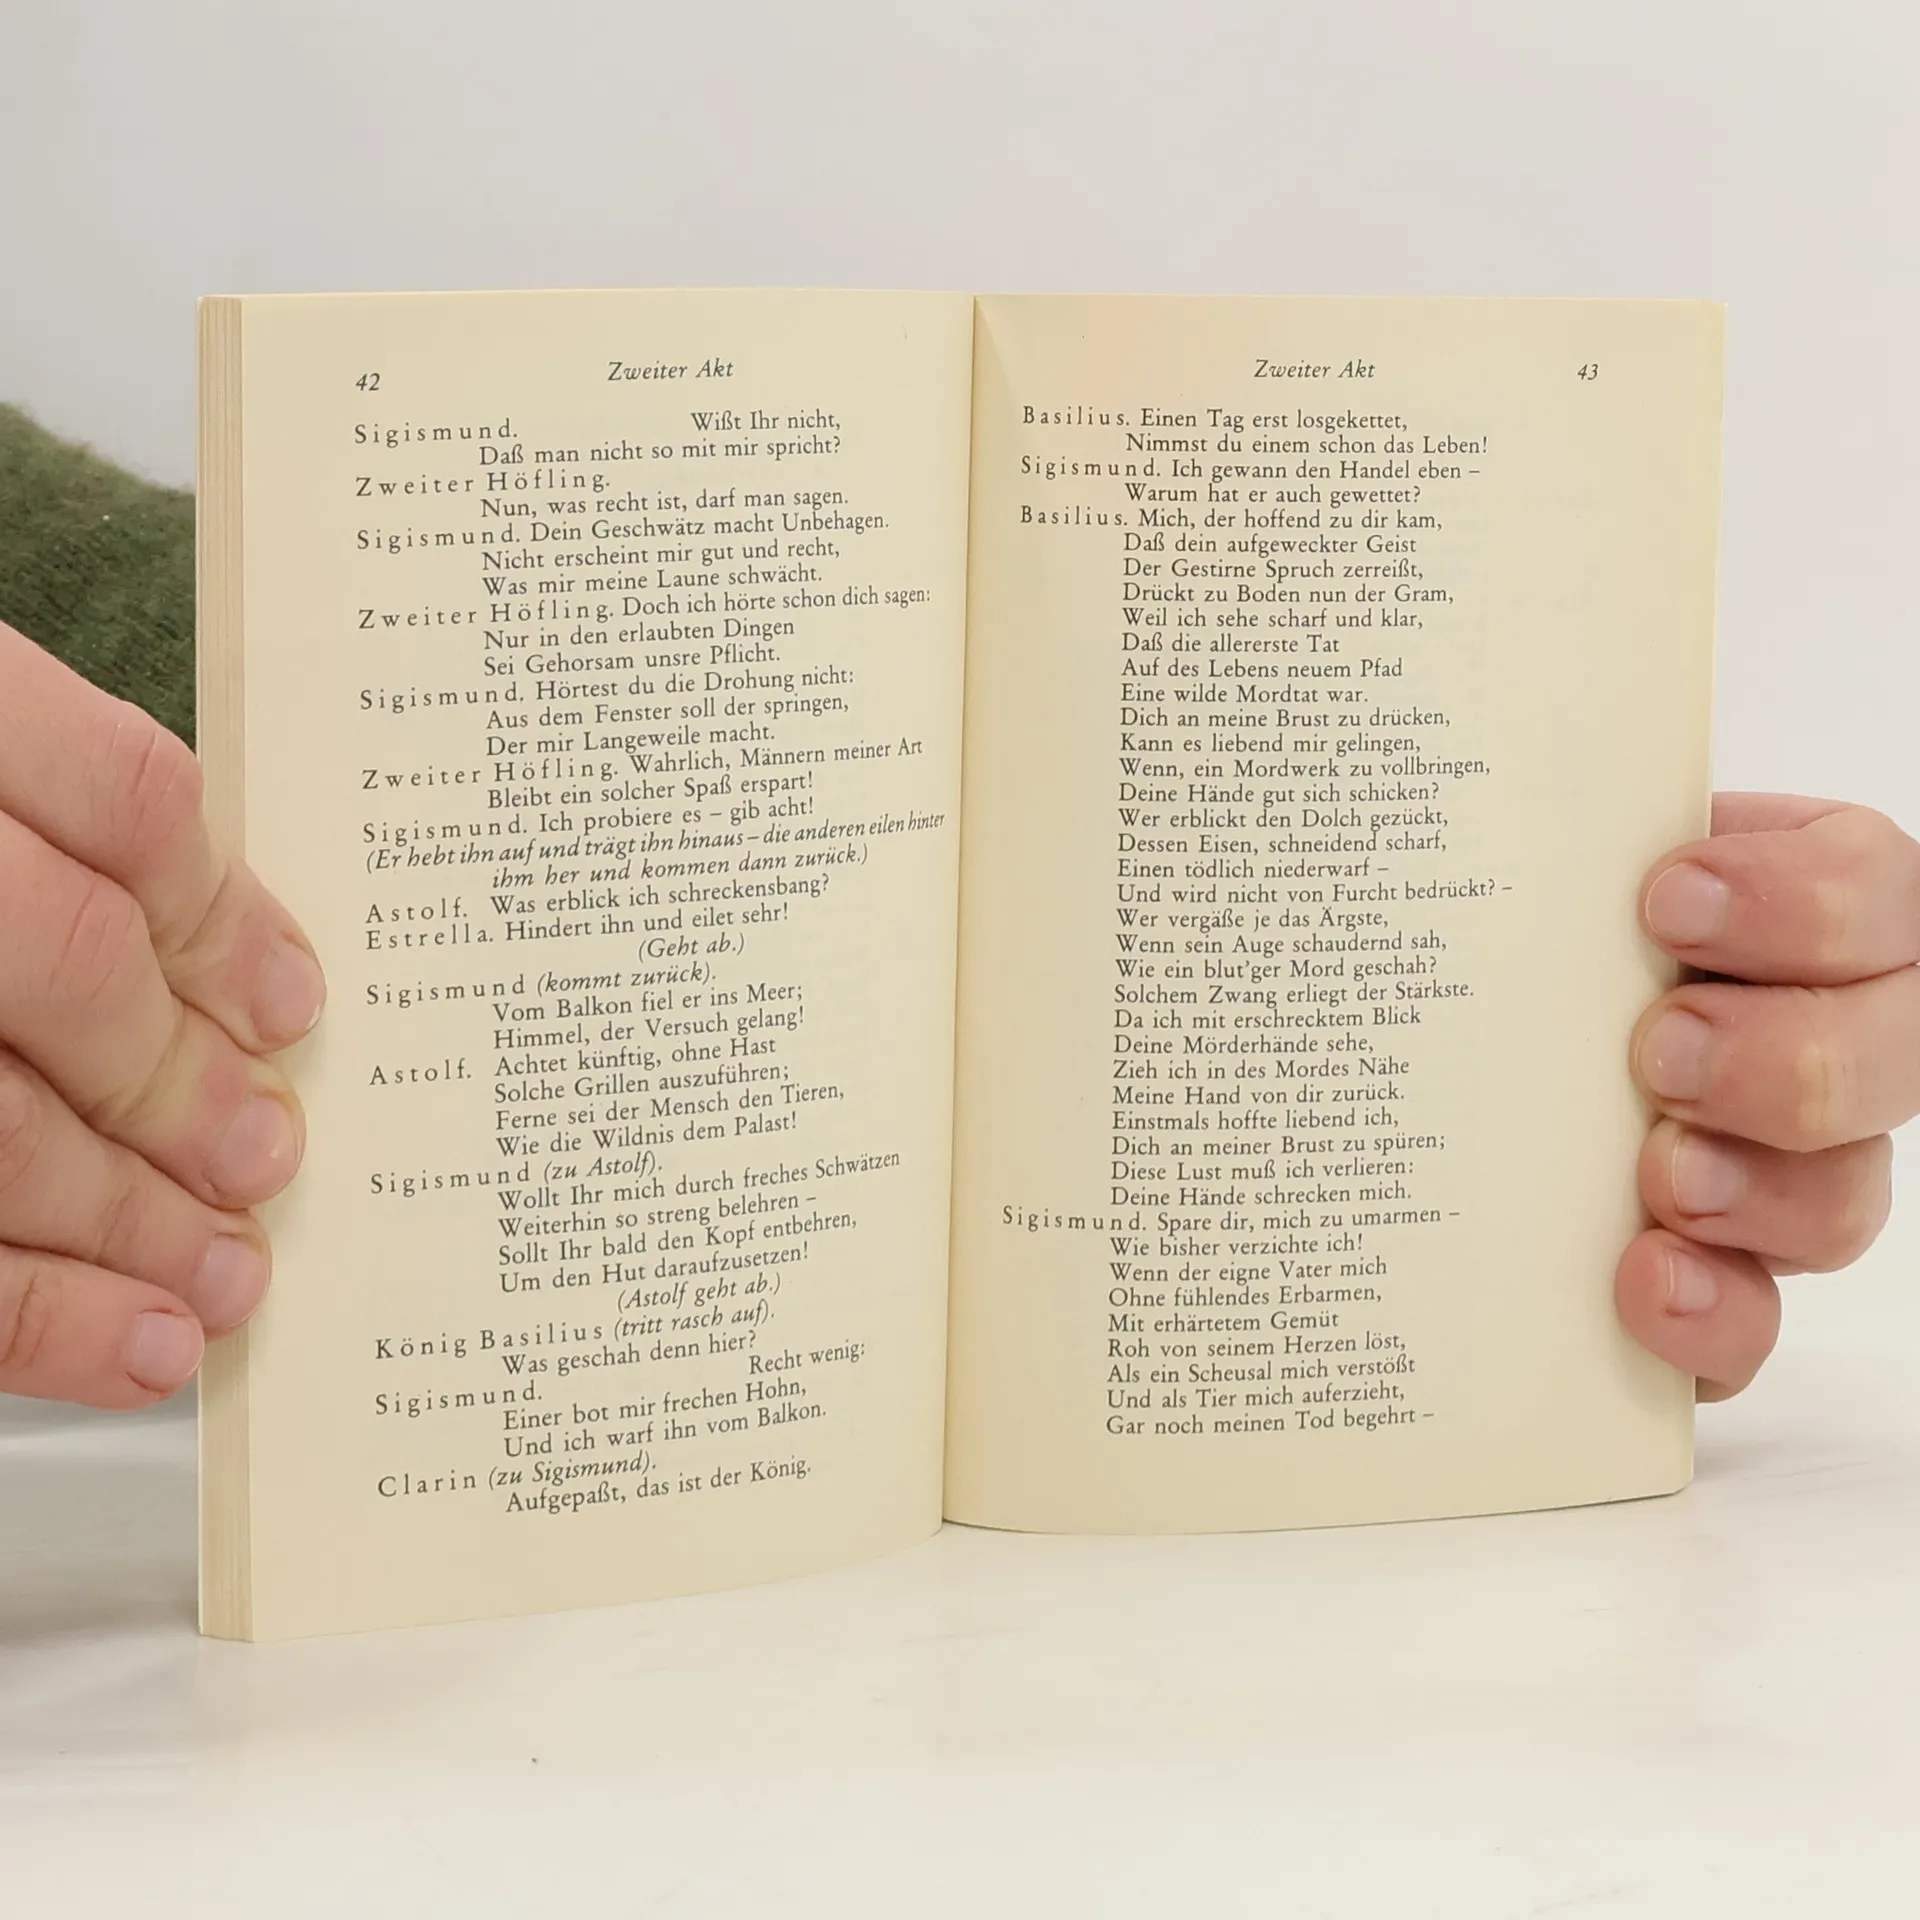 42 Zweiter Akt
Sigismund. Wißt Ihr nicht,
Daß man nicht so mit mir spricht?
Zweiter Höfling.
Nun, was recht ist, darf man sagen.
Sigismund. Dein Geschwätz macht Unbehagen.
Nicht erscheint mir gut und recht,
Was mir meine Laune schwächt.
Zweiter Höfling. Doch ich hörte schon dich sagen:
Nur in den erlaubten Dingen
Sei Gehorsam unsre Pflicht.
Sigismund. Hörtest du die Drohung nicht:
Aus dem Fenster soll der springen,
Der mir Langeweile macht.
Zweiter Höfling. Wahrlich, Männern meiner Art
Bleibt ein solcher Spaß erspart!
Sigismund. Ich probiere es – gib acht!
(Er hebt ihn auf und trägt ihn hinaus – die anderen eilen hinter
ihm her und kommen dann zurück.)
Astolf. Was erblick ich schreckensbang?
Estrella. Hindert ihn und eilet sehr!
(Geht ab.)
Sigismund (kommt zurück).
Vom Balkon fiel er ins Meer;
Himmel, der Versuch gelang!
Astolf. Achtet künftig, ohne Hast
Solche Grillen auszuführen;
Ferne sei der Mensch den Tieren,
Wie die Wildnis dem Palast!
Sigismund (zu Astolf).
Wollt Ihr mich durch freches Schwätzen
Weiterhin so streng belehren –
Sollt Ihr bald den Kopf entbehren,
Um den Hut daraufzusetzen!
(Astolf geht ab.)
König Basilius (tritt rasch auf).
Was geschah denn hier?
Sigismund. Recht wenig:
Einer bot mir frechen Hohn,
Und ich warf ihn vom Balkon.
Clarin (zu Sigismund).
Aufgepaßt, das ist der König.
Zweiter Akt 43
Basilius. Einen Tag erst losgekettet,
Nimmst du einem schon das Leben!
Sigismund. Ich gewann den Handel eben –
Warum hat er auch gewettet?
Basilius. Mich, der hoffend zu dir kam,
Daß dein aufgeweckter Geist
Der Gestirne Spruch zerreißt,
Drückt zu Boden nun der Gram,
Weil ich sehe scharf und klar,
Daß die allererste Tat
Auf des Lebens neuem Pfad
Eine wilde Mordtat war.
Dich an meine Brust zu drücken,
Kann es liebend mir gelingen,
Wenn, ein Mordwerk zu vollbringen,
Deine Hände gut sich schicken?
Wer erblickt den Dolch gezückt,
Dessen Eisen, schneidend scharf,
Einen tödlich niederwarf –
Und wird nicht von Furcht bedrückt? –
Wer vergäße je das Ärgste,
Wenn sein Auge schaudernd sah,
Wie ein blut'ger Mord geschah?
Solchem Zwang erliegt der Stärkste.
Da ich mit erschrecktem Blick
Deine Mörderhände sehe,
Zieh ich in des Mordes Nähe
Meine Hand von dir zurück.
Einstmals hoffte liebend ich,
Dich an meiner Brust zu spüren;
Diese Lust muß ich verlieren:
Deine Hände schrecken mich.
Sigismund. Spare dir, mich zu umarmen –
Wie bisher verzichte ich!
Wenn der eigne Vater mich
Ohne fühlendes Erbarmen,
Mit erhärtetem Gemüt
Roh von seinem Herzen löst,
Als ein Scheusal mich verstößt
Und als Tier mich auferzieht,
Gar noch meinen Tod begehrt –